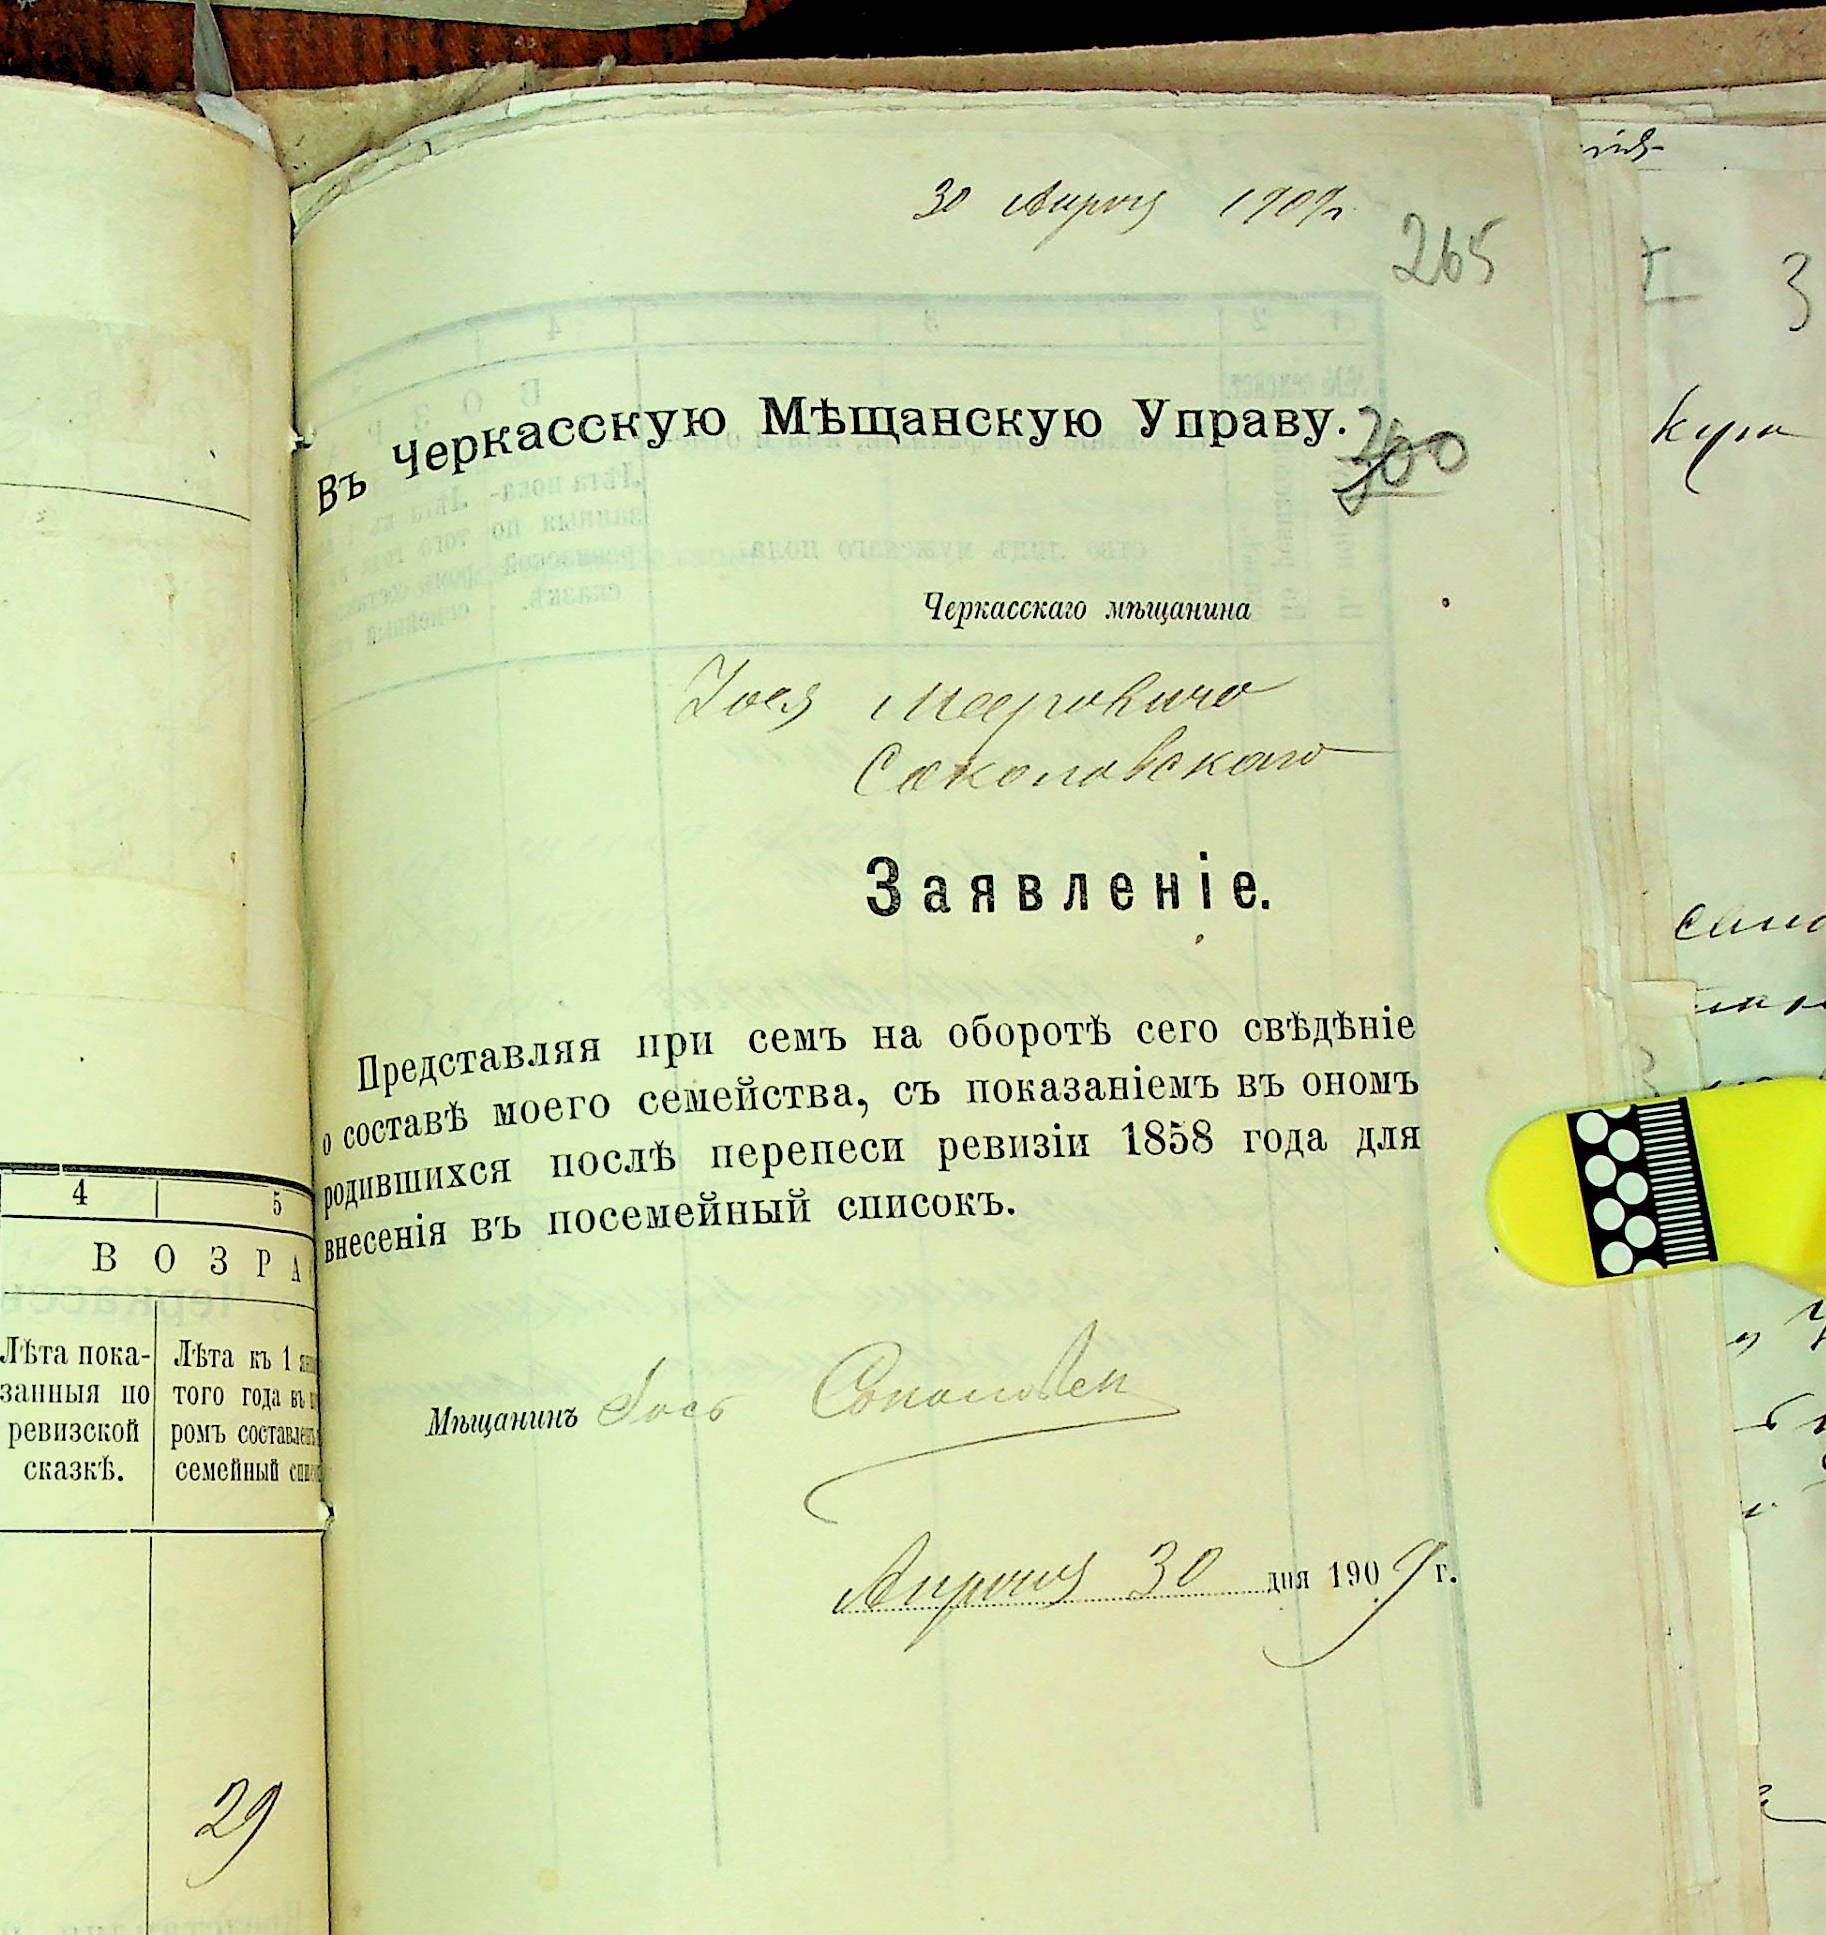 30 Апрѣля 1909 г.
265
Въ Черкасскую Мѣщанскую Управу.
Черкасскаго мѣщанина
Іося Мееровича
Соколовскаго
Заявленіе.
Представляя при семъ на оборотѣ сего свѣдѣніе
о составѣ моего семейства, съ показаніемъ въ ономъ
родившихся послѣ перепеси ревизіи 1858 года для
внесенія въ посемейный списокъ.
Мѣщанинъ Іось
Апрѣля 30 дня 1909 г.
4 5
ВОЗРА
Лѣта пока-
занныя по
ревизской
сказкѣ.
Лѣта къ 1
того года въ
ромъ
семейный
29
3